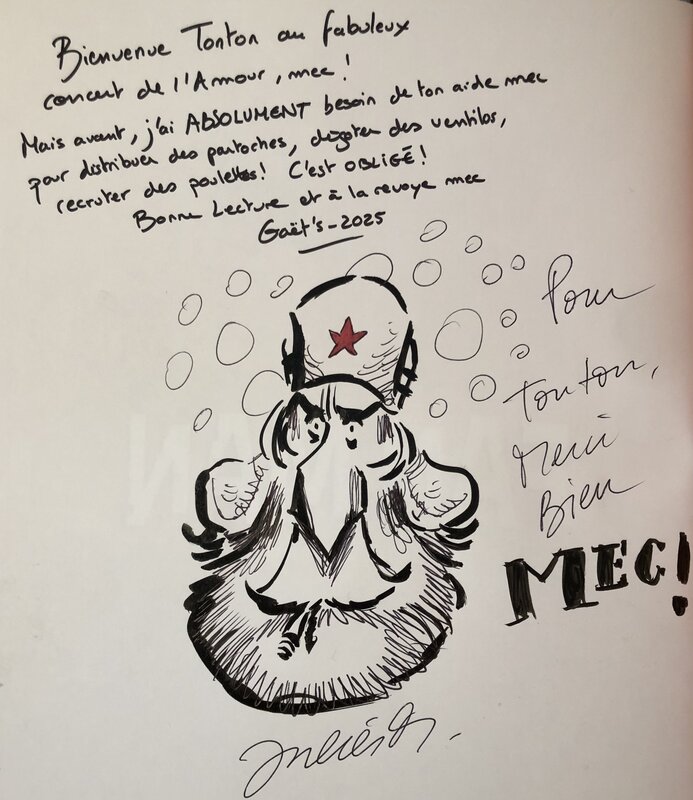 Bienvenue Tonton au fabuleux
concert de l'Amour, mec !
Mais avant, j'ai ABSOLUMENT besoin de ton aide mec
pour distribuer des partoches, dégoter des ventilos,
recruter des poulettes ! C'est OBLIGÉ !
Bonne Lecture et à la revoye mec
Gaët's-2025
Pour
Tonton,
Merci
Bien
MEC!